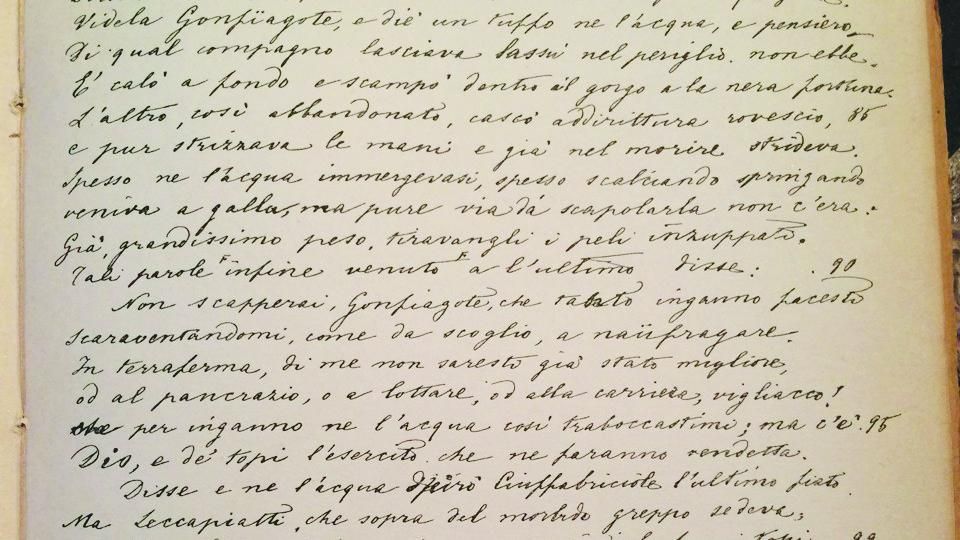 Videla Gonfiagote, e diè un tuffo ne l'acqua, e pensiero
Di qual compagno lasciava lassù nel periglio non ebbe.
E calò a fondo e scampò dentro il gorgo a la nera fortuna.
L'altro, così abbandonato, cascò addirittura rovescio, 85
e pur strizzava le mani e già nel morire strideva.
Spesso ne l'acqua immergevasi, spesso scalciando springando
veniva a galla, ma pure via da scapolarla non c'era:
Già, grandissimo peso, tiravangli i peli inzuppati.
Tali parole infine venuto a l'ultimo disse: 90
Non scapperai, Gonfiagote, che tanto inganno facesti
scaraventandomi, come da scoglio, a naüfragare.
In terraferma, di me non saresti già stato migliore,
od al pancrazio, o a lottare, od alla carriera, vigliacco!
per inganno ne l'acqua così traboccastimi; ma c'è 95
Dio, e de' topi l'esercito che ne faranno vendetta.
Disse e ne l'acqua spirò Ciuffabriciole l'ultimo fiato.
Ma Leccapiatti, che sopra del morbido greppo sedeva,